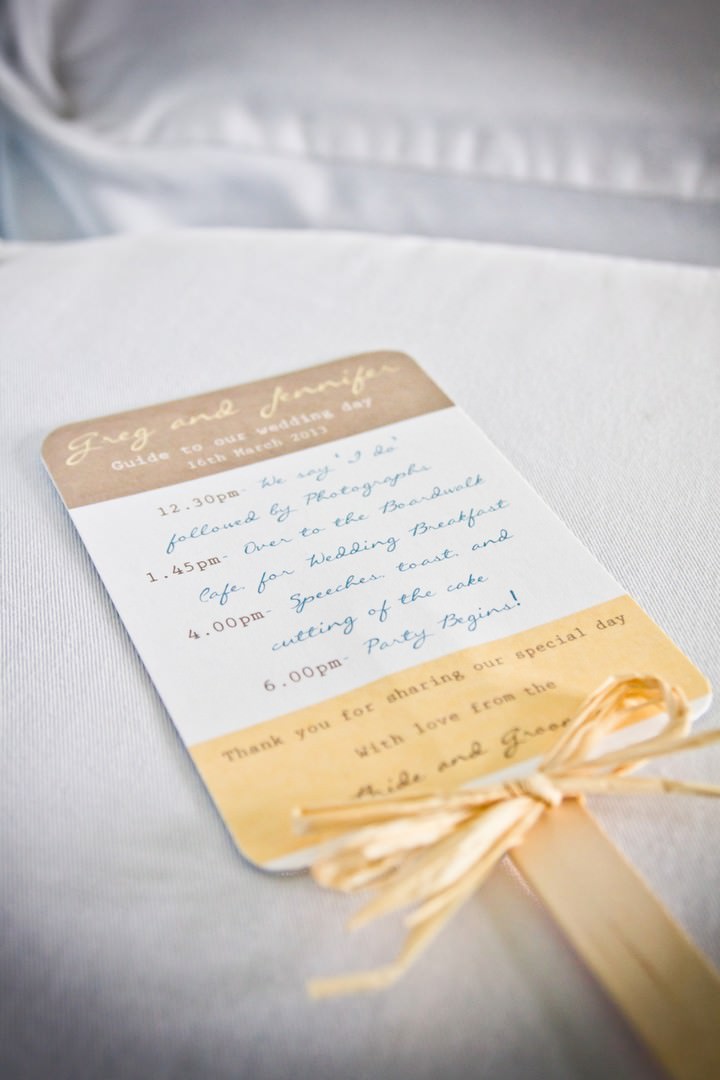 Greg and Jennifer
Guide to our wedding day
16th March 2013
12.30pm- We say 'I do'
followed by Photographs
1.45pm- Over to the Boardwalk
Cafe. for Wedding Breakfast
4.00pm- Speeches.. toast. and
cutting of the cake
6.00pm- Party Begins!
Thank you for sharing our special day
With love from the
Bride and Groom